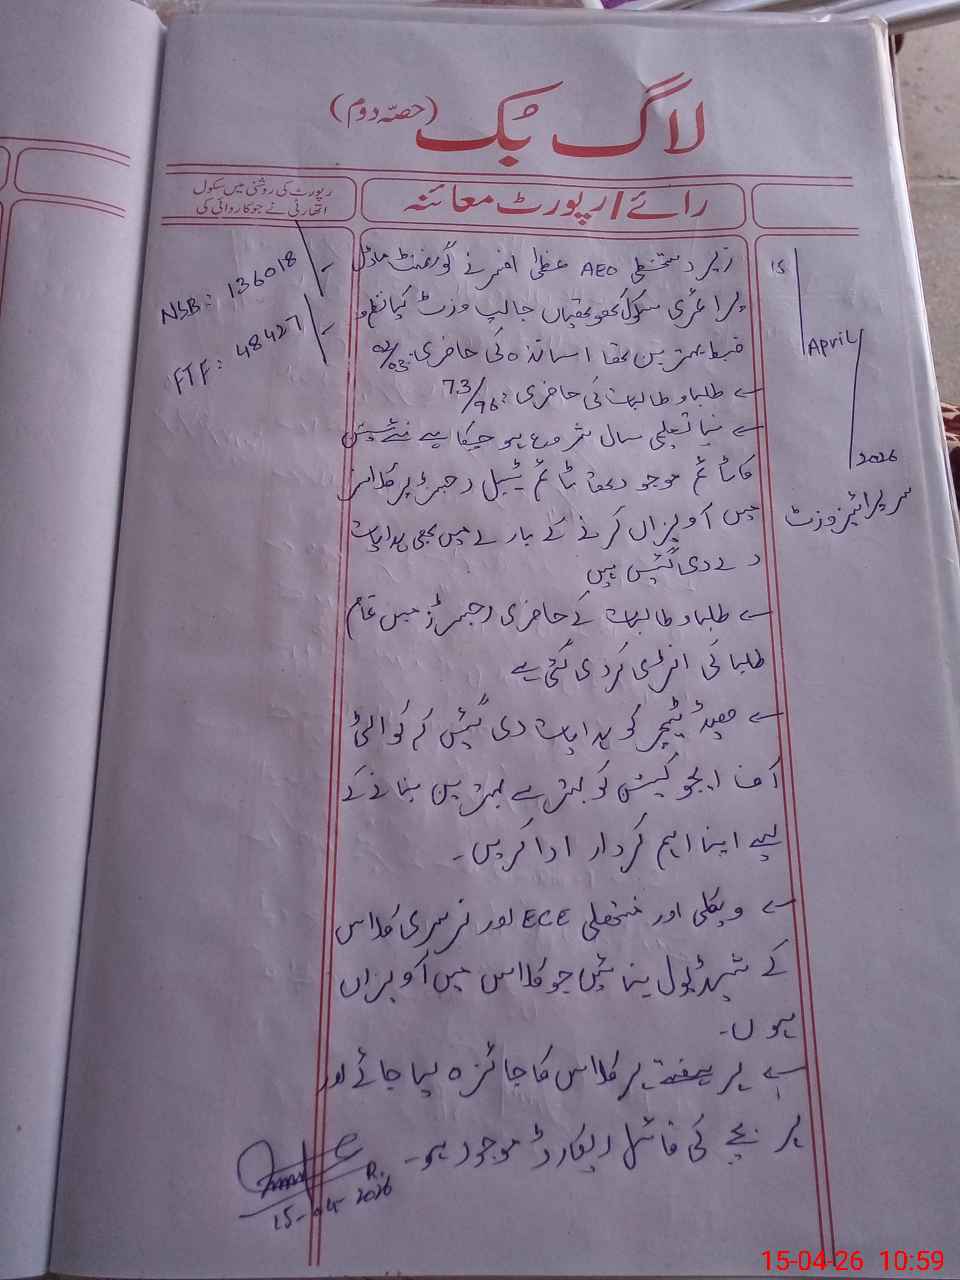 لاگ بُک (حصّہ دوم)
رائے/رپورٹ معائنہ
رپورٹ کی روشنی میں سکول
اتھارٹی نے جو کاروائی کی
15
April
2026
سرپرائیز وزٹ
NSB: 136018/-
FTF: 48427/-
زیر دستخطی AEO عظمیٰ افسر نے گورنمنٹ ماڈل
پرائمری سکول جالپ وزٹ کیا نظم و
ضبط بہترین تھا اساتذہ کی حاضری: 02/03
طلباء و طالبات کی حاضری: 73/96
نیا تعلیمی سال شروع ہو چکا ہے نئے سیشن
کا ٹائم موجود تھا ٹائم ٹیبل رجسٹر پر کلاسز
میں آویزاں کرنے کے بارے میں بھی ہدایات
دے دی گئیں ہیں
طلباء و طالبات کے حاضری رجسٹرڈ میں تمام
طلبا کی انٹری کر دی گئی ہے
ہیڈ ٹیچر کو ہدایات دی گئیں کہ کوالٹی
آف ایجوکیشن کو بہتر سے بہترین بنانے کے
لیے اپنا اہم کردار ادا کریں۔
ویکلی اور منتھلی ECE اور نرسری کلاس
کے شیڈیول بنائیں جو کلاس میں آویزاں
ہوں۔
ہر ہفتے ہر کلاس کا جائزہ لیا جائے اور
ہر بچے کی فائل ریکارڈ موجود ہو۔
15-04-2026
15-04-26 10:59